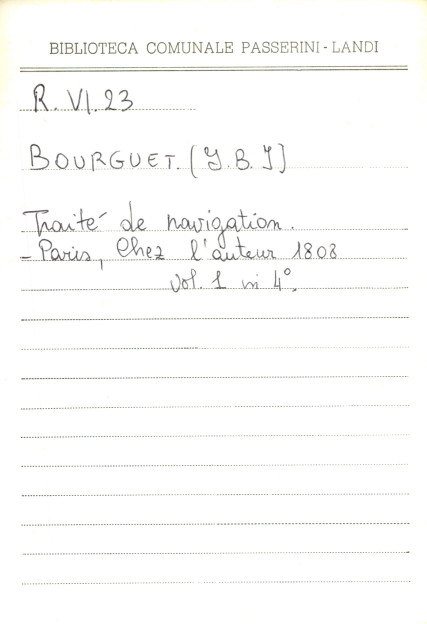 BIBLIOTECA COMUNALE PASSERINI - LANDI
R. VI. 23
BOURGUET. (J. B. J)
Traité de navigation.
- Paris, Chez l'auteur 1808
vol. 1 in 4°.